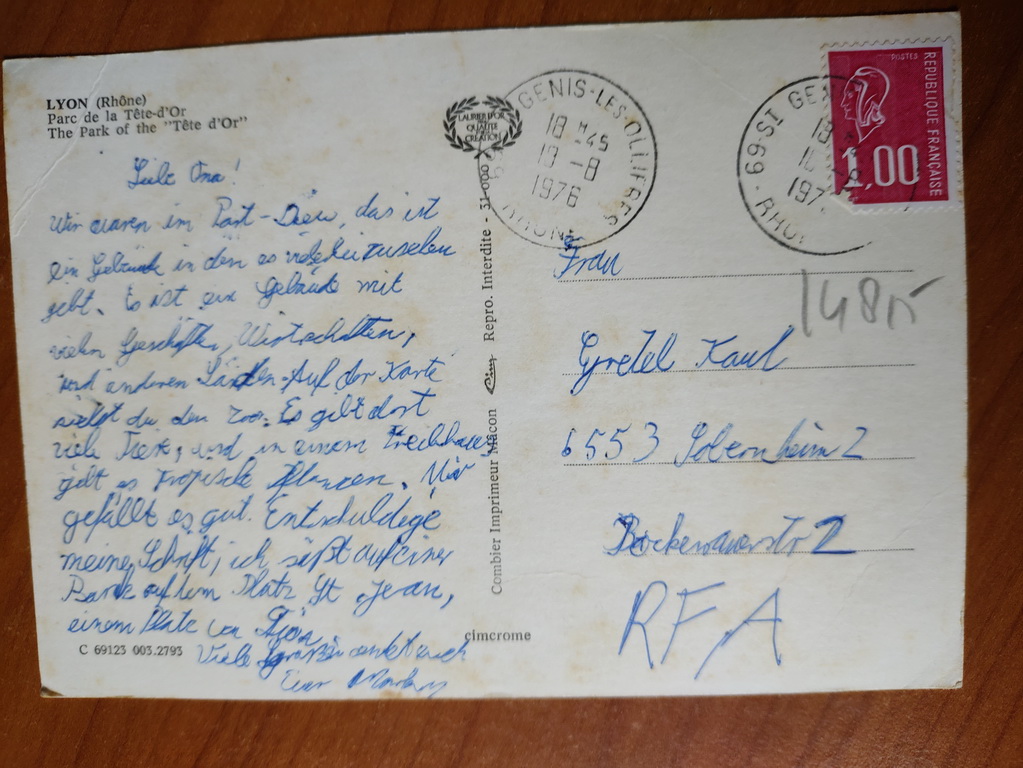 LYON (Rhône)
Parc de la Tête-d'Or
The Park of the "Tête d'Or"
LAURIER D'OR
QUALITÉ
CRÉATION
Oma!
Wir waren im Part-Dieu, das ist
ein Gebäude in dem es zusehen
gebt. Es ist ein Gebäude mit
vielen Geschäften, Wirtschaften,
und anderen Läden. Auf der Karte
siehst du den Zoo. Es gibt dort
viele Tiere, und in einem Treibhaus
gibt es tropische Pflanzen. Mir
gefällt es gut. Entschuldige
meine Schrift, ich auf einer
Bank auf dem Platz St. Jean,
einem Platz von
Viele
C 69123 003.2793
cimcrome
Combier Imprimeur Mâcon Cim Repro. Interdite - 31-000
GENIS-LES-OLLIERES
18 H 45
18 -8
1976
RHONE
69 ST GE
18
1
197
RHO
POSTES
REPUBLIQUE FRANÇAISE
1,00
148
Frau
Gretel Kaul
6553 Sobernheim 2
RFA